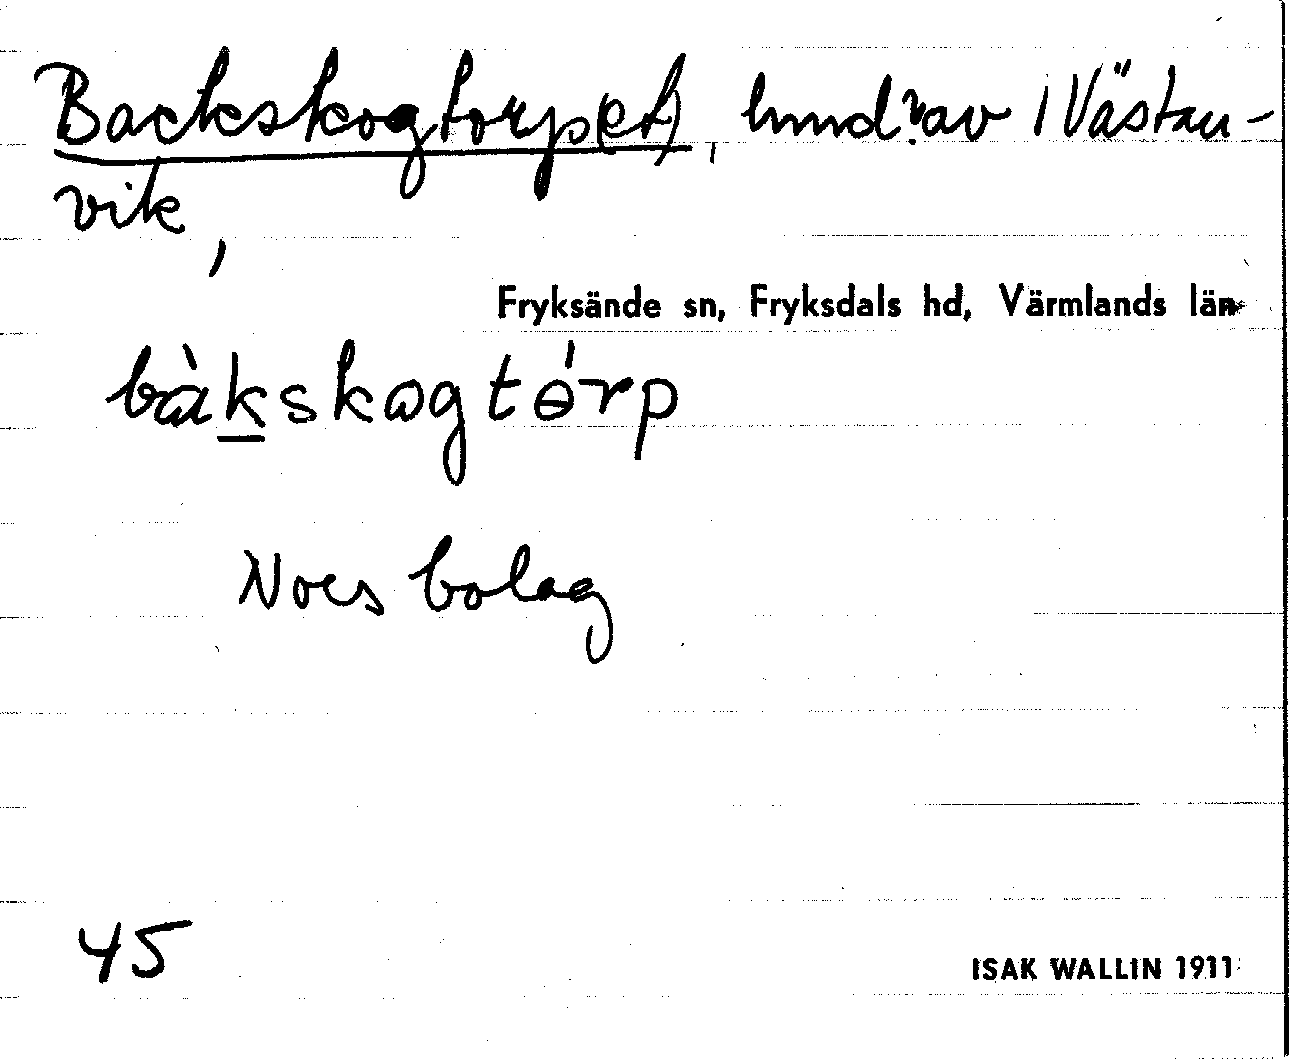 Backskogtorp(et), hmd av 1 Västan-
vik,
Fryksände sn, Fryksdals hd, Värmlands län
bàkskɷgtɵ́rp
Noes bolag
45
ISAK WALLIN 1911